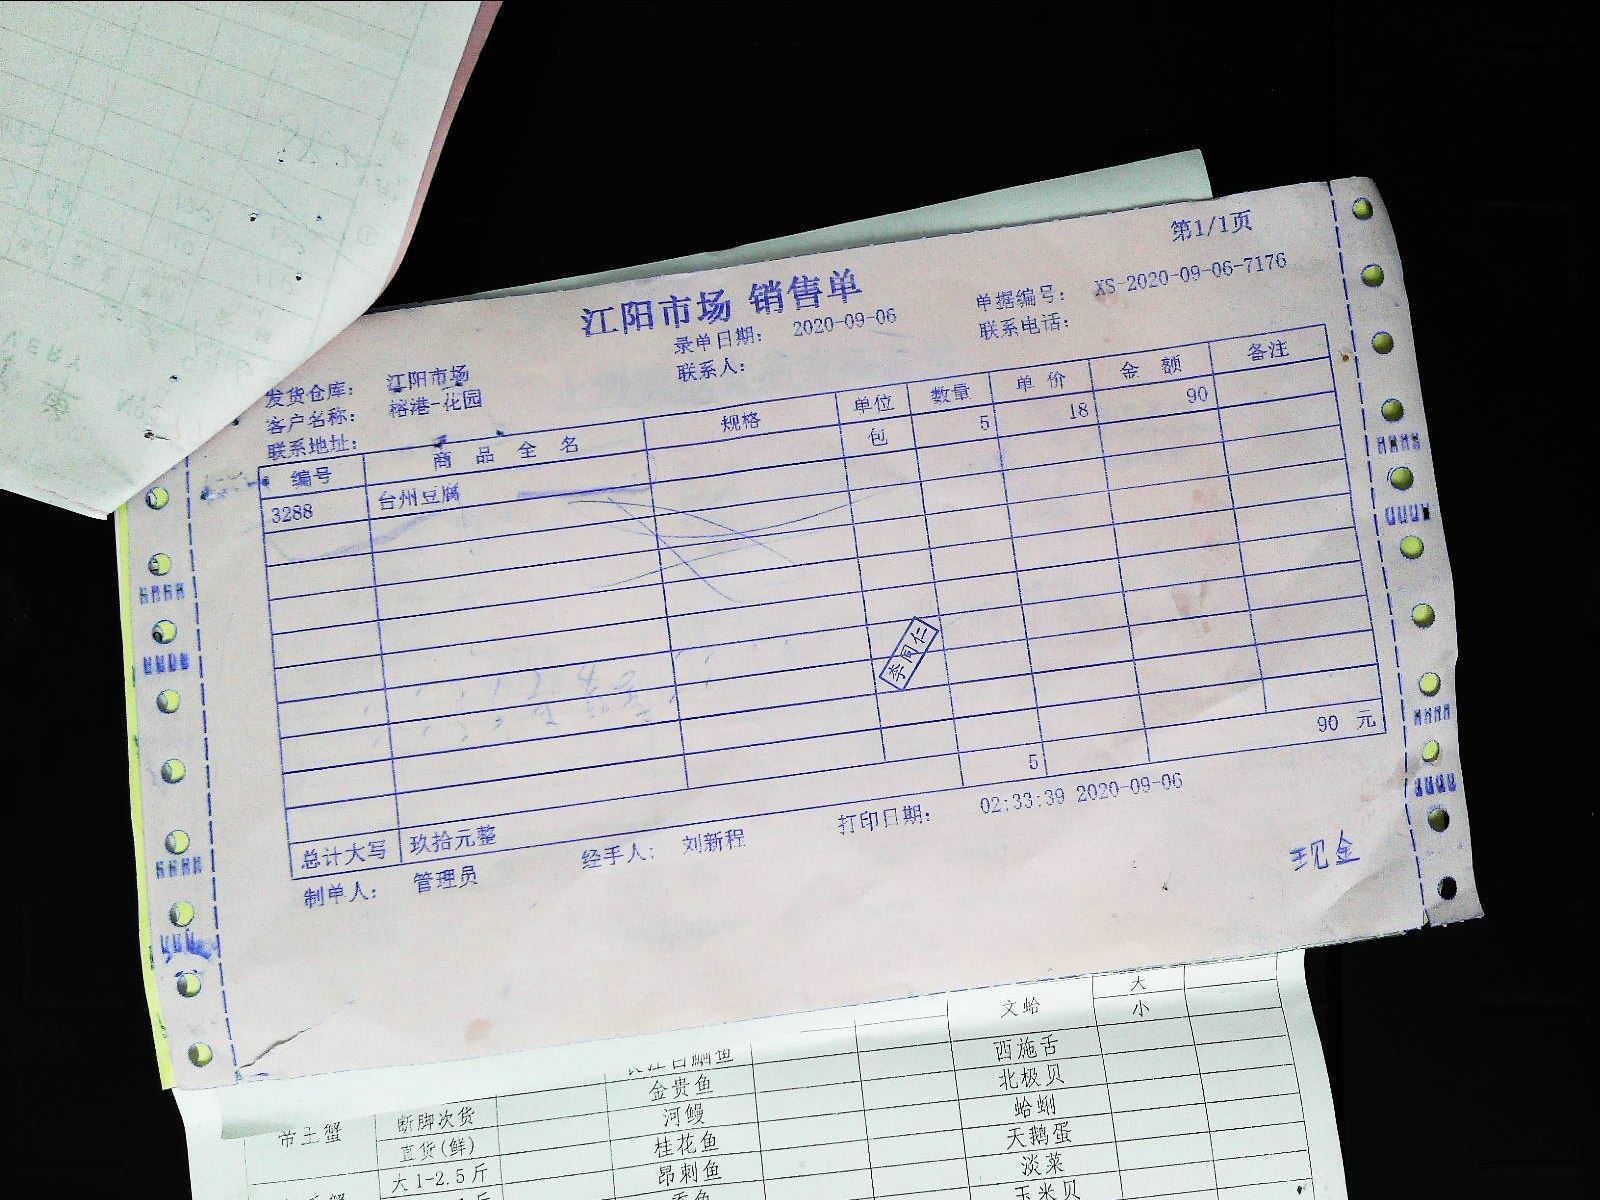 第1/1页
江阳市场 销售单
录单日期： 2020-09-06 单据编号： XS-2020-09-06-7176
联系人： 联系电话：
发货仓库： 江阳市场
客户名称： 榕港-花园
联系地址：
编号 商品全名 规格 单位 数量 单价 金额 备注
3288 台州豆腐 包 5 18 90
李同仁
5 90 元
总计大写 玖拾元整
制单人： 管理员 经手人： 刘新程 打印日期： 02:33:39 2020-09-06
现金
文蛤 大
小
西施舌
金贵鱼 北极贝
断脚次货 河鳗 蛤蜊
直货(鲜) 桂花鱼 天鹅蛋
大1-2.5斤 昂刺鱼 淡菜
玉米贝